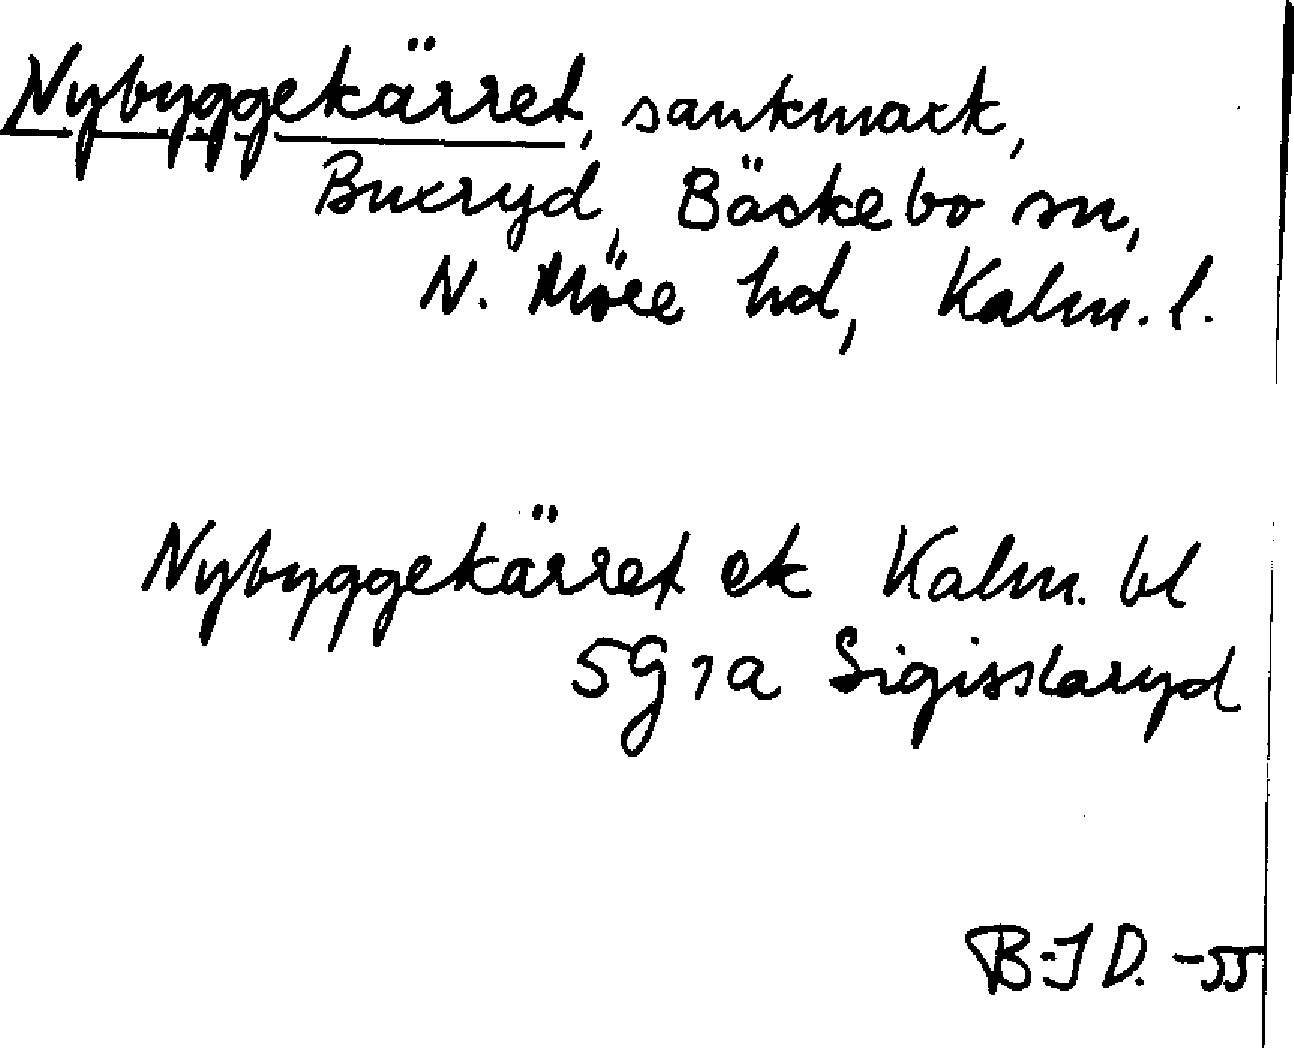 Nybyggekärret, sankmark,
Buxryd, Bäckebo sn,
N. Möre hd, Kalm. l.
Nybyggekärret ek Kalm. bl
5G 1a Sigisslaryd
B-J D. -55